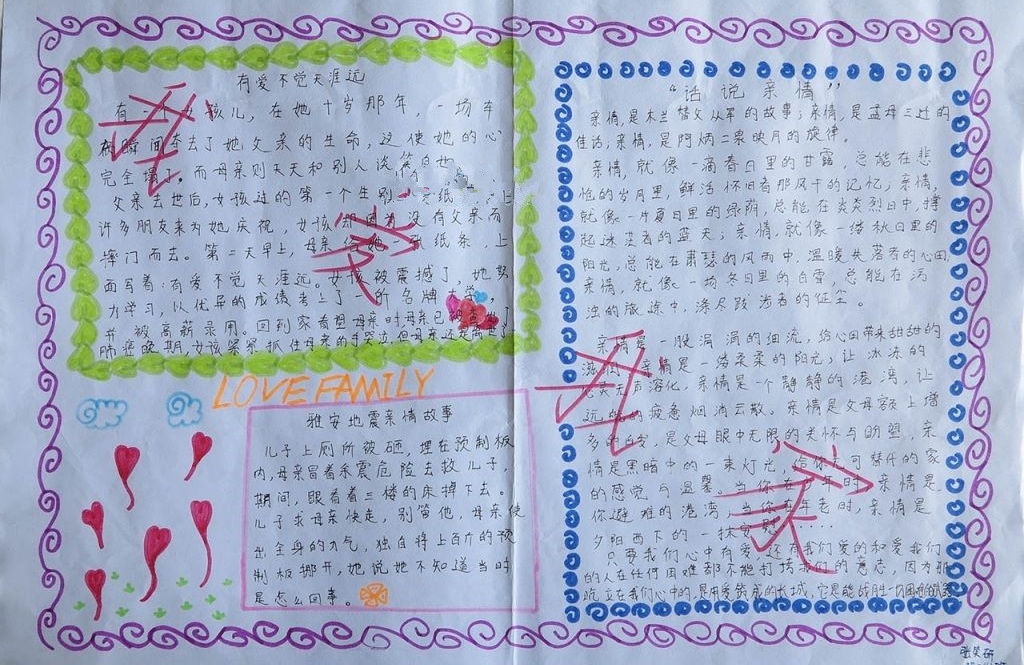 有爱不觉天涯远
有一女孩儿，在她十岁那年，一场车
祸瞬间夺去了她父亲的生命，这使她的心
完全塌了。而母亲则天天和别人谈笑自
父亲去世后，女孩过的第一个生
许多朋友来为她庆祝，女孩却因为没有父亲而
摔门而去。第二天早上，母亲给她一张纸条，上
面写着：有爱不觉天涯远。女孩被震撼了，她努
力学习，以优异的成绩考上了一所名牌大学，
并被高薪录用。回到家看望母亲时，母亲已被查出了
肺癌晚期，女孩紧紧抓住母亲的手哭泣，但母亲还是离去了
LOVE FAMILY
雅安地震亲情故事
儿子上厕所被砸，埋在预制板
内，母亲冒着余震危险去救儿子，
期间，眼看着三楼的床掉下去。
儿子求母亲快走，别管他，母亲使
出全身的力气，独自将上百斤的预
制板挪开，她说她不知道当时
是怎么回事。
“话说亲情”
亲情，是木兰替父从军的故事；亲情，是孟母三迁的
佳话；亲情，是阿炳二泉映月的旋律。
亲情，就像一滴春日里的甘露，总能在悲
怆的岁月里，鲜活怀旧者那风干的记忆；亲情，
就像一片夏日里的绿荫，总能在炎炎烈日中，撑
起迷茫者的蓝天；亲情，就像一缕秋日里的
阳光，总能在肃瑟的风雨中，温暖失落者的心田；
亲情，就像一场冬日里的白雪，总能在污
浊的旅途中，涤尽跋涉者的征尘。
亲情是一股涓涓的细流，给心田带来甜甜的
滋润；亲情是一缕柔柔的阳光，让冰冻的
心灵无声溶化，亲情是一个静静的港湾，让
远航的疲惫烟消云散。亲情是父母额上增
多的白发，是父母眼中无限的关怀与期望，亲
情是黑暗中的一束灯光，给你无可替代的家
的感觉与温馨。当你在少年时，亲情是
你避难的港湾，当你在年老时，亲情是
夕阳西下的一抹安慰
只要我们心中有爱，还有我们爱的和爱我们
的人在任何困难都不能打垮我们的意志，因为那
屹立在我们心中的，是用爱筑成的长城，它是能战胜一切困难的
张笑研